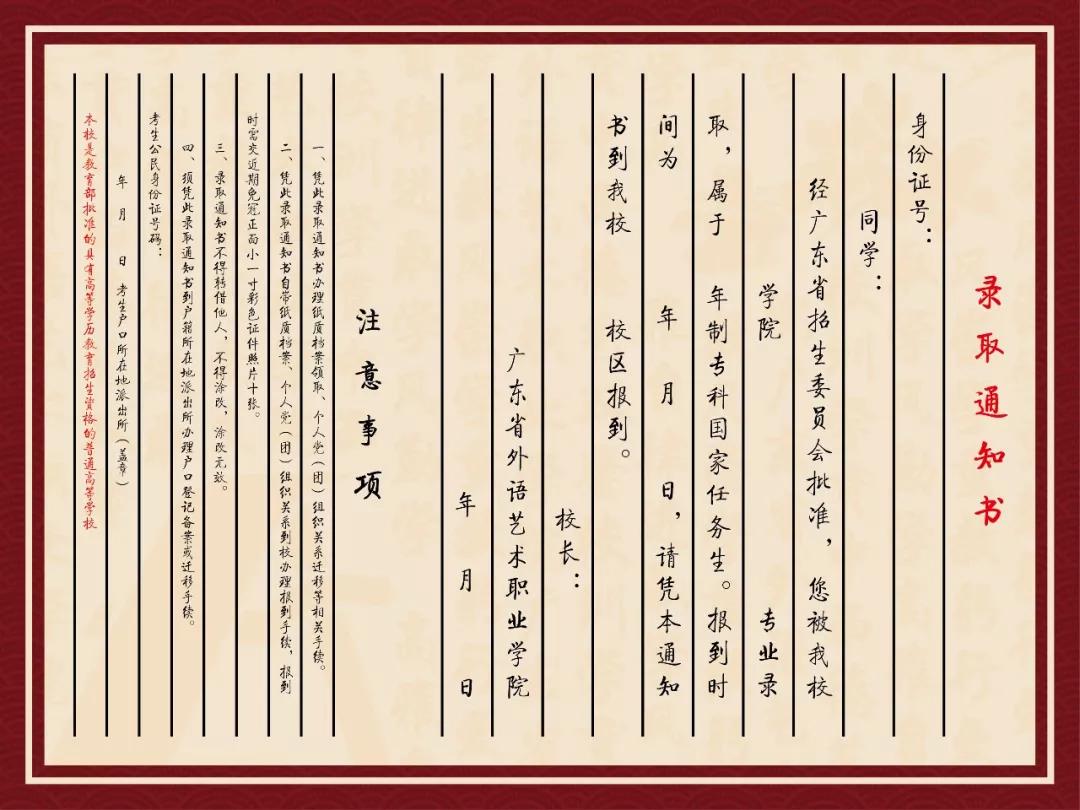 录取通知书
身份证号：
同学：
经广东省招生委员会批准，您被我校
学院 专业录
取，属于 年制专科国家任务生。报到时
间为 年 月 日，请凭本通知
书到我校 校区报到。
校长：
广东省外语艺术职业学院
年 月 日
注意事项
一、凭此录取通知书办理纸质档案领取、个人党（团）组织关系迁移等相关手续。
二、凭此录取通知书自带纸质档案、个人党（团）组织关系到校办理报到手续，报到
时需交近期免冠正面小一寸彩色证件照片十张。
三、录取通知书不得转借他人，不得涂改，涂改无效。
四、须凭此录取通知书到户籍所在地派出所办理户口登记备案或迁移手续。
考生公民身份证号码：
年 月 日 考生户口所在地派出所（盖章）
本校是教育部批准的具有高等学历教育招生资格的普通高等学校